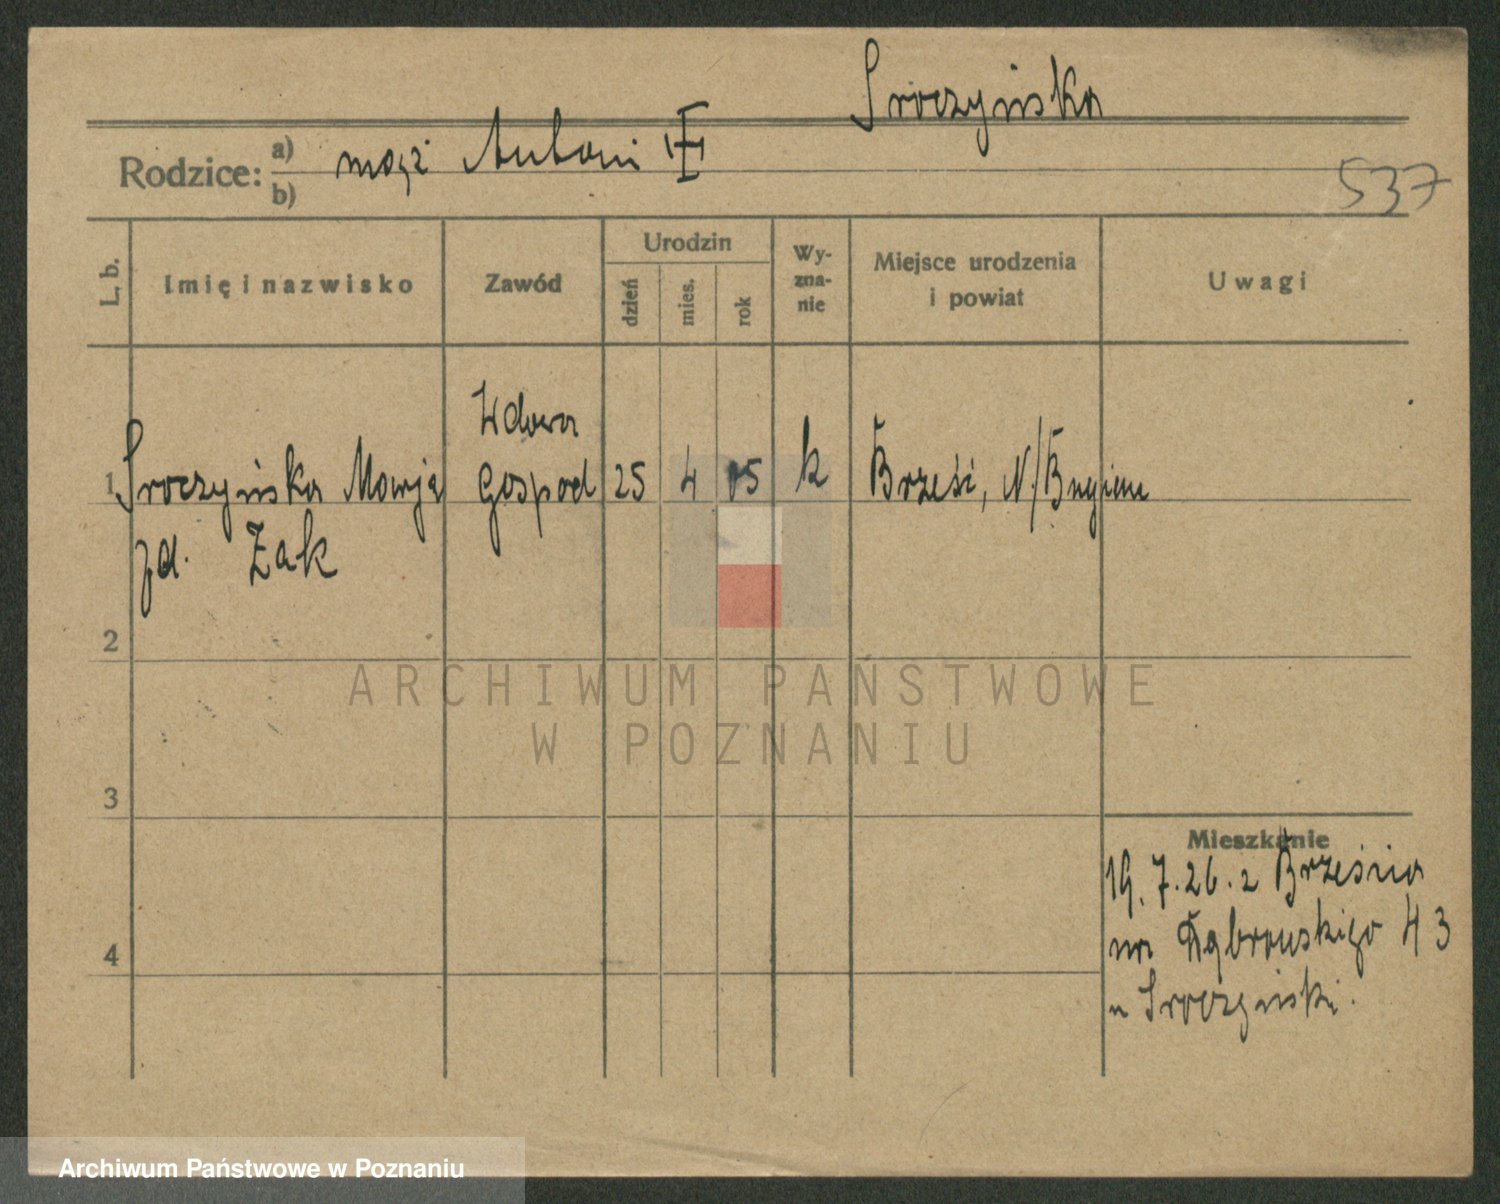 Sroczyńska
Rodzice: a) mąż Antoni
b)
537
L. b.
Imię i nazwisko
Zawód
Urodzin
dzień
mies.
rok
Wy-
zna-
nie
Miejsce urodzenia
i powiat
Uwagi
Wdowa
1 Sroczyńska Marja Gospod 25 4 05 k Brześć, N/Bugiem
zd. Żak
2
ARCHIWUM PAŃSTWOWE
W POZNANIU
3
Mieszkanie
19.7.26. z Brześcia
na Dąbrowskiego 43
4
u Sroczyński.
Archiwum Państwowe w Poznaniu